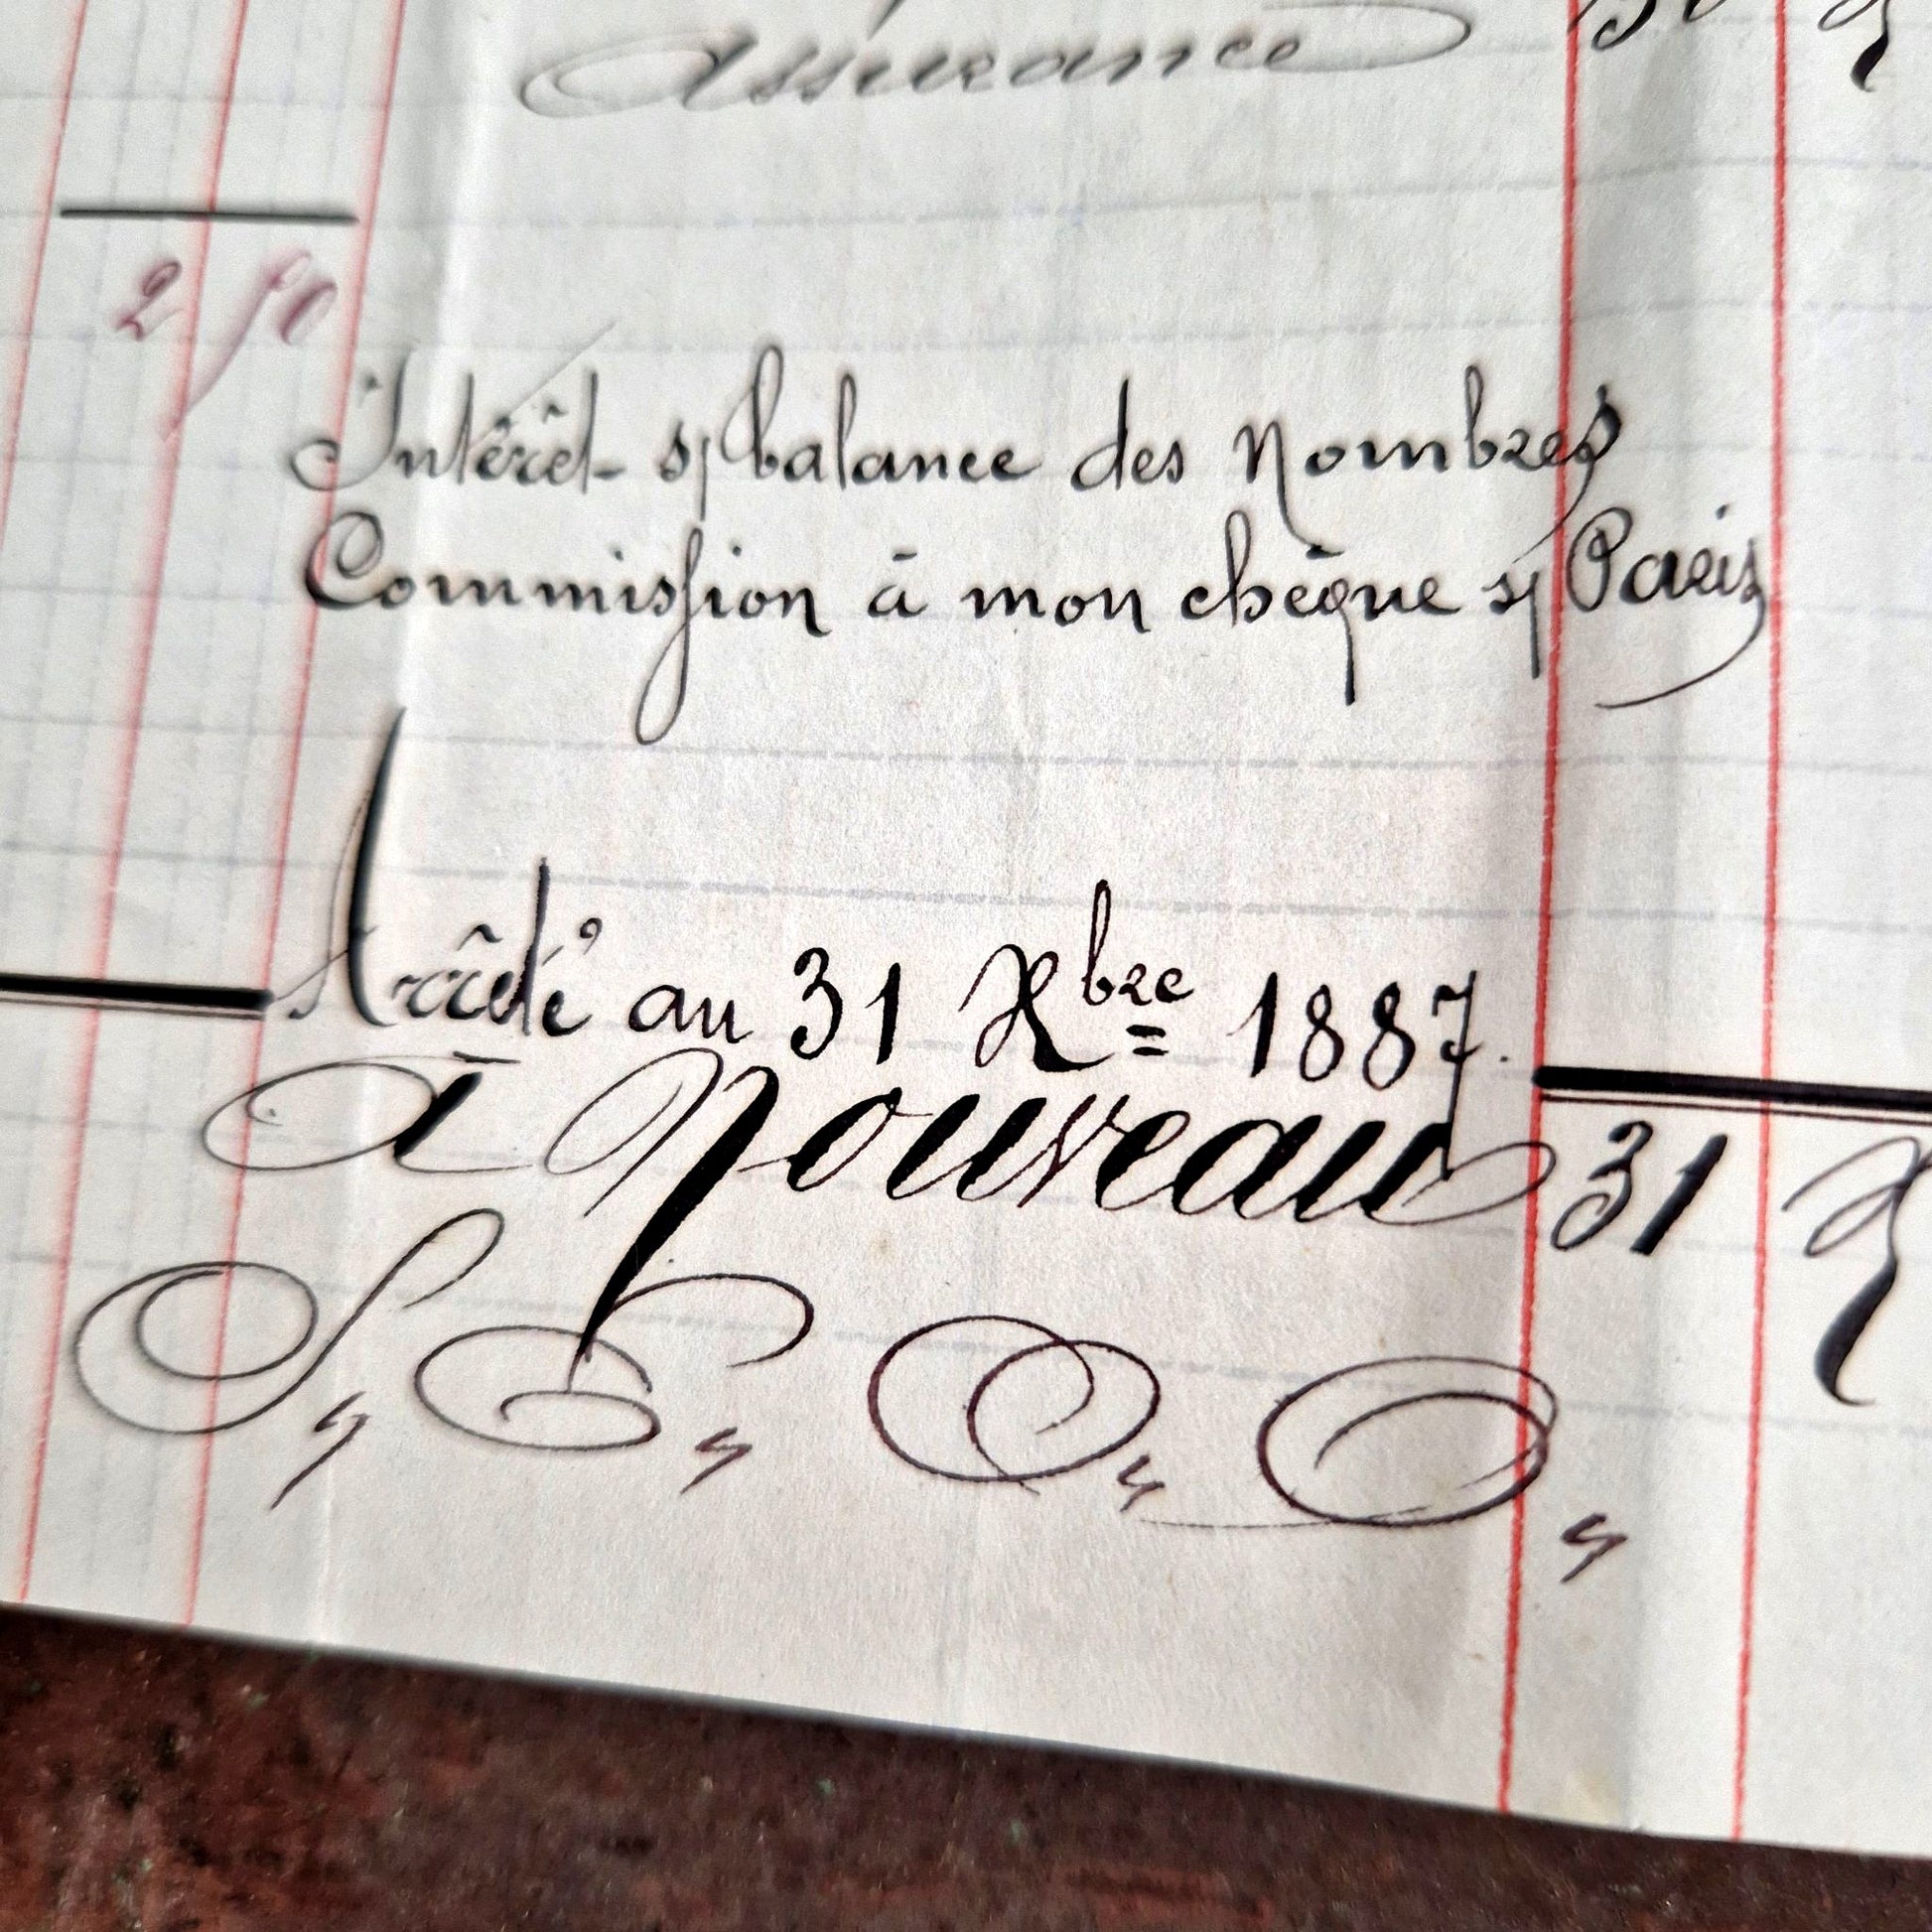 Assurance
2 50
Intérêt s/ balance des Nombres
Commission à mon chèque s/ Paris
Arrêté au 31 Xbre 1887.
à Nouveau 31 X
S, E, O, O,